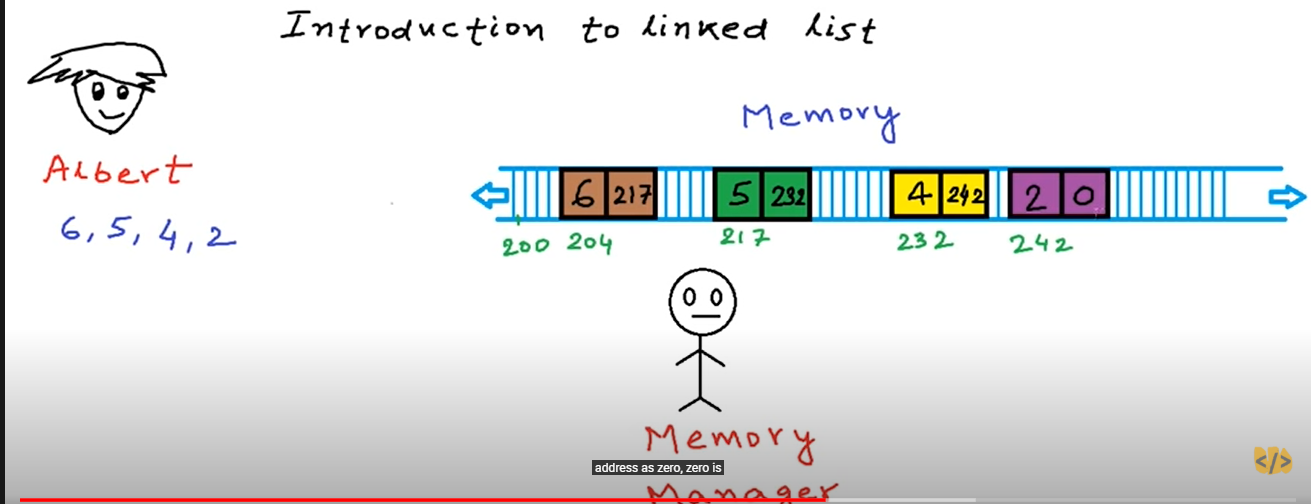 Introduction to linked list
Albert
6, 5, 4, 2
Memory
6 217 5 232 4 242 2 0
200 204 217 232 242
Memory
address as zero, zero is
Manager
</>